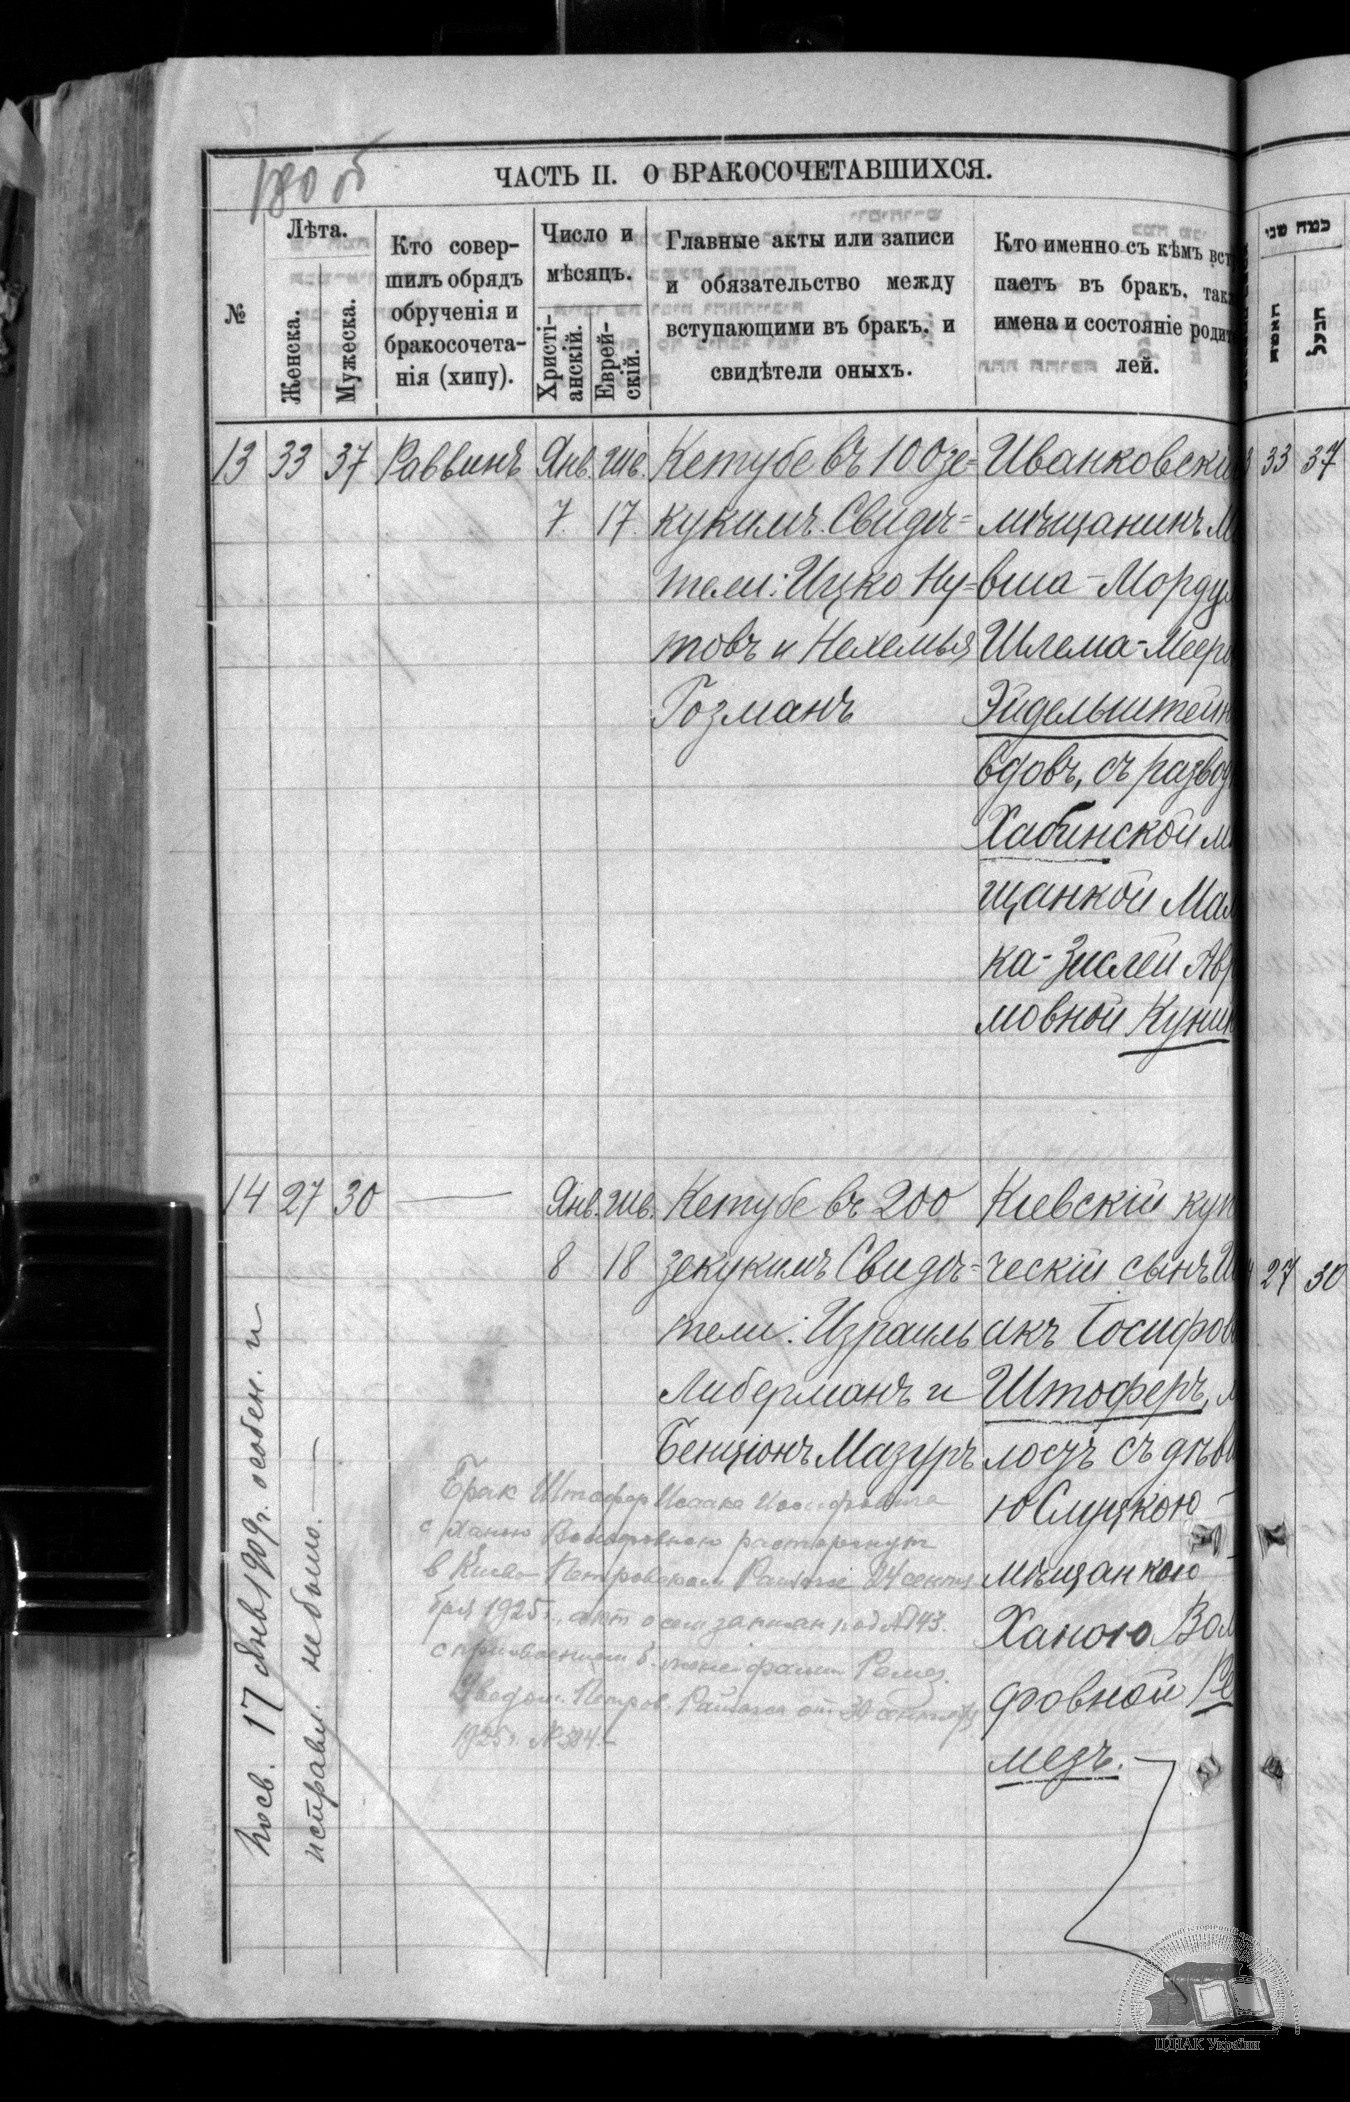 180 об
ЧАСТЬ II. О БРАКОСОЧЕТАВШИХСЯ.
№
Лѣта.
Женска.
Мужеска.
Кто совер-
шилъ обрядъ
обрученія и
бракосочета-
нія (хипу).
Число и
мѣсяцъ.
Христі-
анскій.
Еврей-
скій.
Главные акты или записи
и обязательство между
вступающими въ бракъ, и
свидѣтели оныхъ.
Кто именно съ кѣмъ всту
паетъ въ бракъ, такж
имена и состояніе родит
лей.
כמה שני
האשה
הבעל
13 33 37 Раввинъ Янв. Шв.
7. 17.
Кетубе въ 100 зе=
кукимъ. Свидѣ=
тели: Ицко Ну=
товъ и Нехемья
Гозманъ
Иванковскій
мѣщанинъ М
вша-Мордух
Шлема-Меер
Эйдельштейн
вдовъ, съ развод
Хабинской м
щанкой Мал
ка-Зислей Авр
мовной Куник
33 37
14 27 30 — Янв. Шв.
8 18
Кетубе въ 200
зекукимъ Свидѣ=
тели: Израиль
Либерманъ и
Бенціонъ Мазуръ
Кіевскій куп
ческій сынъ И
акъ Іосифов
Штоферъ, х
лостъ съ дѣви
ю Слуцкою
мѣщанкою
Ханою Вол
фовной Ре
мезъ.
27 30
Брак Штофер Исаака Иосифовича
с Ханою Вольфовною расторгнут
в Киево-Петровском Райзагсе 24 сентя
бря 1925 г., акт о сем записан под № 143.
с присвоением б. жене фамил Ремез.
Уведом. Петров. Райзагса от 30 сентября
1925 г. № 384.-
Посв. 17 Янв 1909 г. особен. и
исправл. не было. —
ЦДІАК України